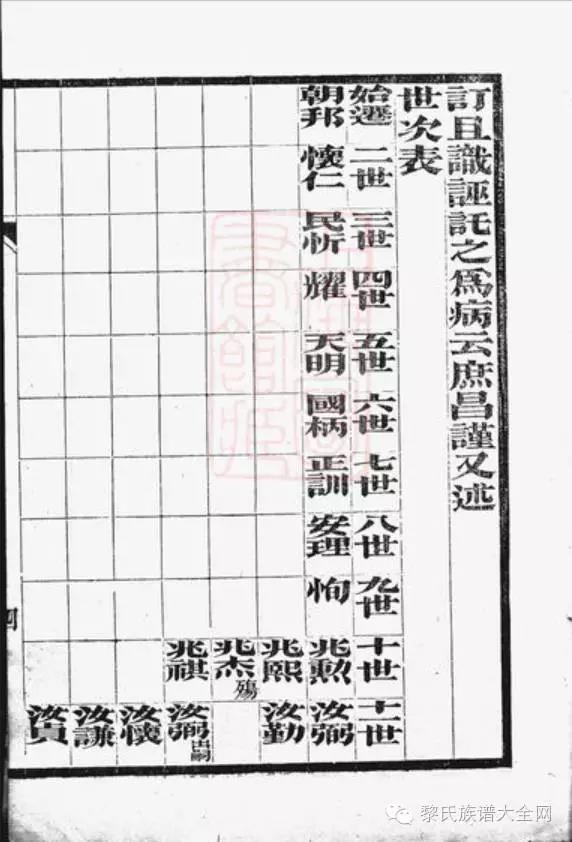 訂且識誣託之爲病云庶昌謹又述
世次表
始遷 二世 三世 四世 五世 六世 七世 八世 九世 十世 十一世
朝邦 懷仁 民忻 耀 天明 國柄 正訓 安理 恂 兆勲 汝弼
兆熙 汝勤
兆杰 殤
兆祺 汝弼 出嗣
汝懷
汝謙
汝貞
四
黎氏族谱大全网